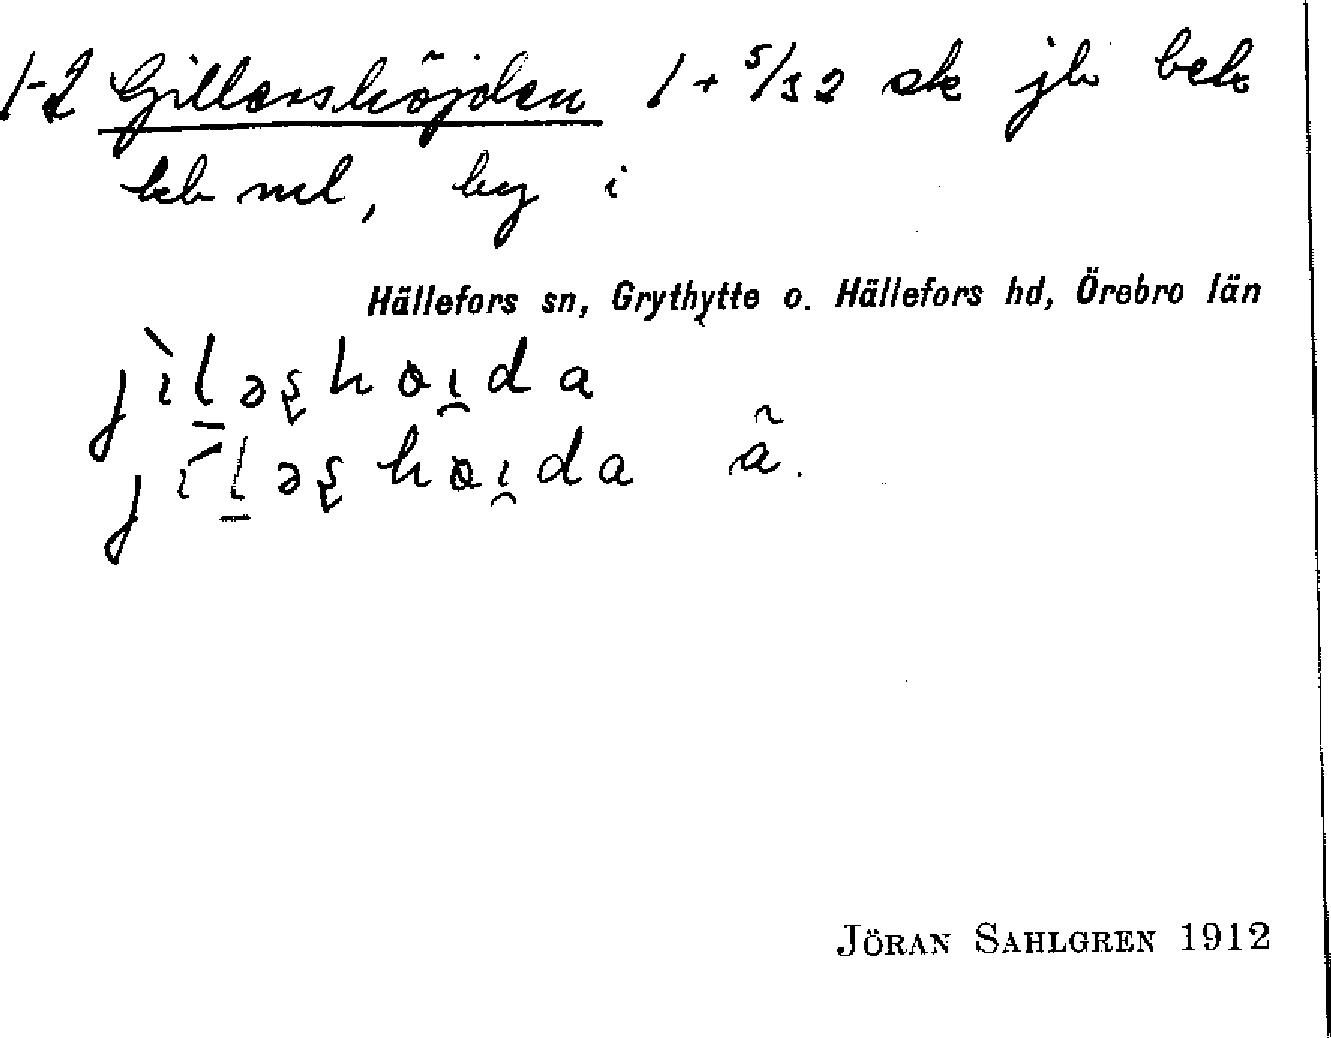 1-2 Gillershöjden 1 + 5/32 sk jb bek
beb nel, by i
Hällefors sn, Grythytte o. Hällefors hd, Örebro län
jìl̠əʂhöi̯da
jíl̠əʂhöi̯da ã.
JÖRAN SAHLGREN 1912